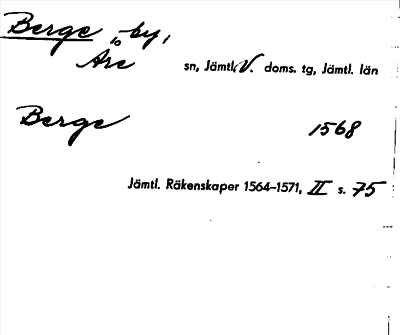 Berge, by,
Åre sn, Jämtl. V. doms. tg, Jämtl. län
Berge 1568
Jämtl. Räkenskaper 1564–1571, II s. 75